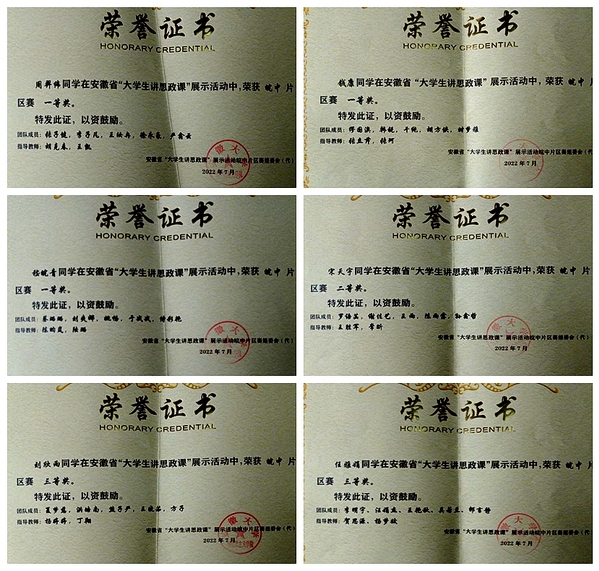 荣誉证书
HONORARY CREDENTIAL
同学在安徽省“大学生讲思政课”展示活动中，荣获 皖中 片
区赛 一等奖。
特发此证，以资鼓励。
团队成员：
指导教师：
安徽省“大学生讲思政课”展示活动皖中片区赛组委会（代）
2022年7月
荣誉证书
HONORARY CREDENTIAL
钱康同学在安徽省“大学生讲思政课”展示活动中，荣获 皖中 片
区赛 一等奖。
特发此证，以资鼓励。
团队成员：
指导教师：
安徽省“大学生讲思政课”展示活动皖中片区赛组委会（代）
2022年7月
荣誉证书
HONORARY CREDENTIAL
同学在安徽省“大学生讲思政课”展示活动中，荣获 皖中 片
区赛 一等奖。
特发此证，以资鼓励。
团队成员：
指导教师：
安徽省“大学生讲思政课”展示活动皖中片区赛组委会（代）
2022年7月
荣誉证书
HONORARY CREDENTIAL
宋天宇同学在安徽省“大学生讲思政课”展示活动中，荣获 皖中 片
区赛 二等奖。
特发此证，以资鼓励。
团队成员：
指导教师：
安徽省“大学生讲思政课”展示活动皖中片区赛组委会（代）
2022年7月
荣誉证书
HONORARY CREDENTIAL
刘欣雨同学在安徽省“大学生讲思政课”展示活动中，荣获 皖中 片
区赛 三等奖。
特发此证，以资鼓励。
团队成员：
指导教师：杨婷婷，丁翔
安徽省“大学生讲思政课”展示活动皖中片区赛组委会（代）
2022年7月
荣誉证书
HONORARY CREDENTIAL
任雅娟同学在安徽省“大学生讲思政课”展示活动中，荣获 皖中 片
区赛 三等奖。
特发此证，以资鼓励。
团队成员：
指导教师：贺思源，杨梦璇
安徽省“大学生讲思政课”展示活动皖中片区赛组委会（代）
2022年7月